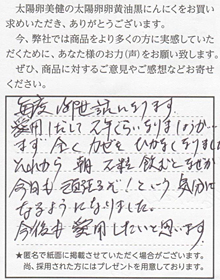 太陽卵美健の太陽卵卵黄油黒にんにくをお買い
求めいただき、ありがとうございます。
今、弊社では商品をより多くの方に実感していた
だくために、あなた様のお力(声)をお願い致します。
ぜひ、商品に対するご意見やご感想などお寄せ
ください。
毎度お世話になります。
愛用しだして
ます。全くカゼもひかなくなりました
それから 朝 飲むとなぜか
今日も頑張るぞ!という気分に
なるようになりました。
今後も愛用したいと思います
★匿名で紙面に掲載させていただく場合がございます。
尚、採用された方にはプレゼントを用意しております。